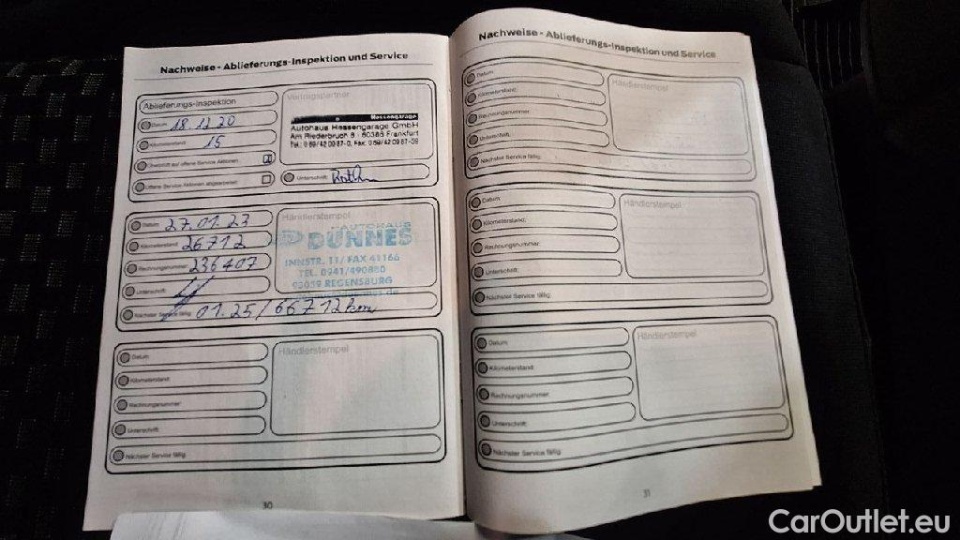 Nachweise - Ablieferungs-Inspektion und Service
Ablieferungs-Inspektion
Vertragspartner
Datum: 18.12.20
Kilometerstand: 15
Hessengarage
Autohaus Hessengarage GmbH
Am Riederbruch 8 · 60386 Frankfurt
Überprüft auf offene Service Aktionen:
Offene Service Aktionen abgearbeitet:
Unterschrift:
Datum: 27.01.23
Kilometerstand: 26712
Rechnungsnummer: 236407
Unterschrift:
Nächster Service fällig: 01.25/66712km
Händlerstempel
AUTOHAUS
DÜNNES
INNSTR. 11/ FAX 41166
TEL. 0941/490880
93059 REGENSBURG
Datum:
Kilometerstand:
Rechnungsnummer:
Unterschrift:
Nächster Service fällig:
Händlerstempel
30
Nachweise - Ablieferungs-Inspektion und Service
Datum:
Kilometerstand:
Rechnungsnummer:
Unterschrift:
Nächster Service fällig:
Händlerstempel
Datum:
Kilometerstand:
Rechnungsnummer:
Unterschrift:
Nächster Service fällig:
Händlerstempel
Datum:
Kilometerstand:
Rechnungsnummer:
Unterschrift:
Nächster Service fällig:
Händlerstempel
31
CarOutlet.eu